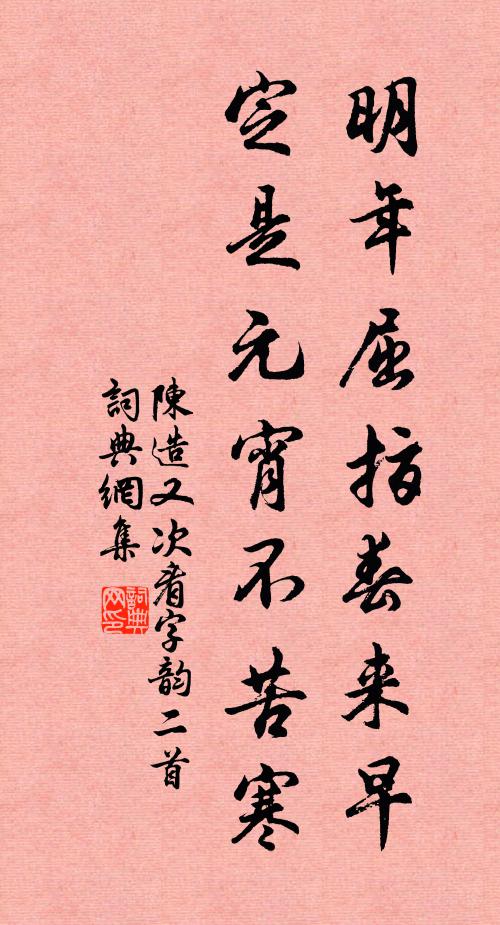 明年屈指春来早
定是元宵不苦寒
陳造又次看字韵二首
詞典網集
詞典网印